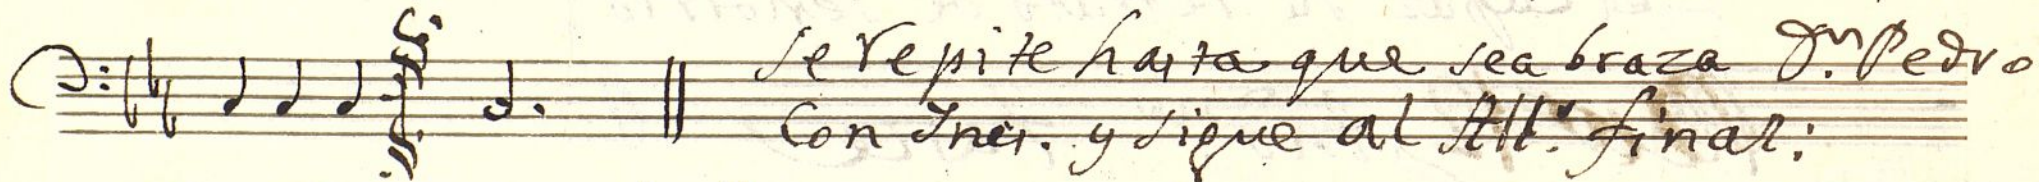 se repite hasta que sea braza Dn. Pedro
Con Ines. y sigue al All.º final: